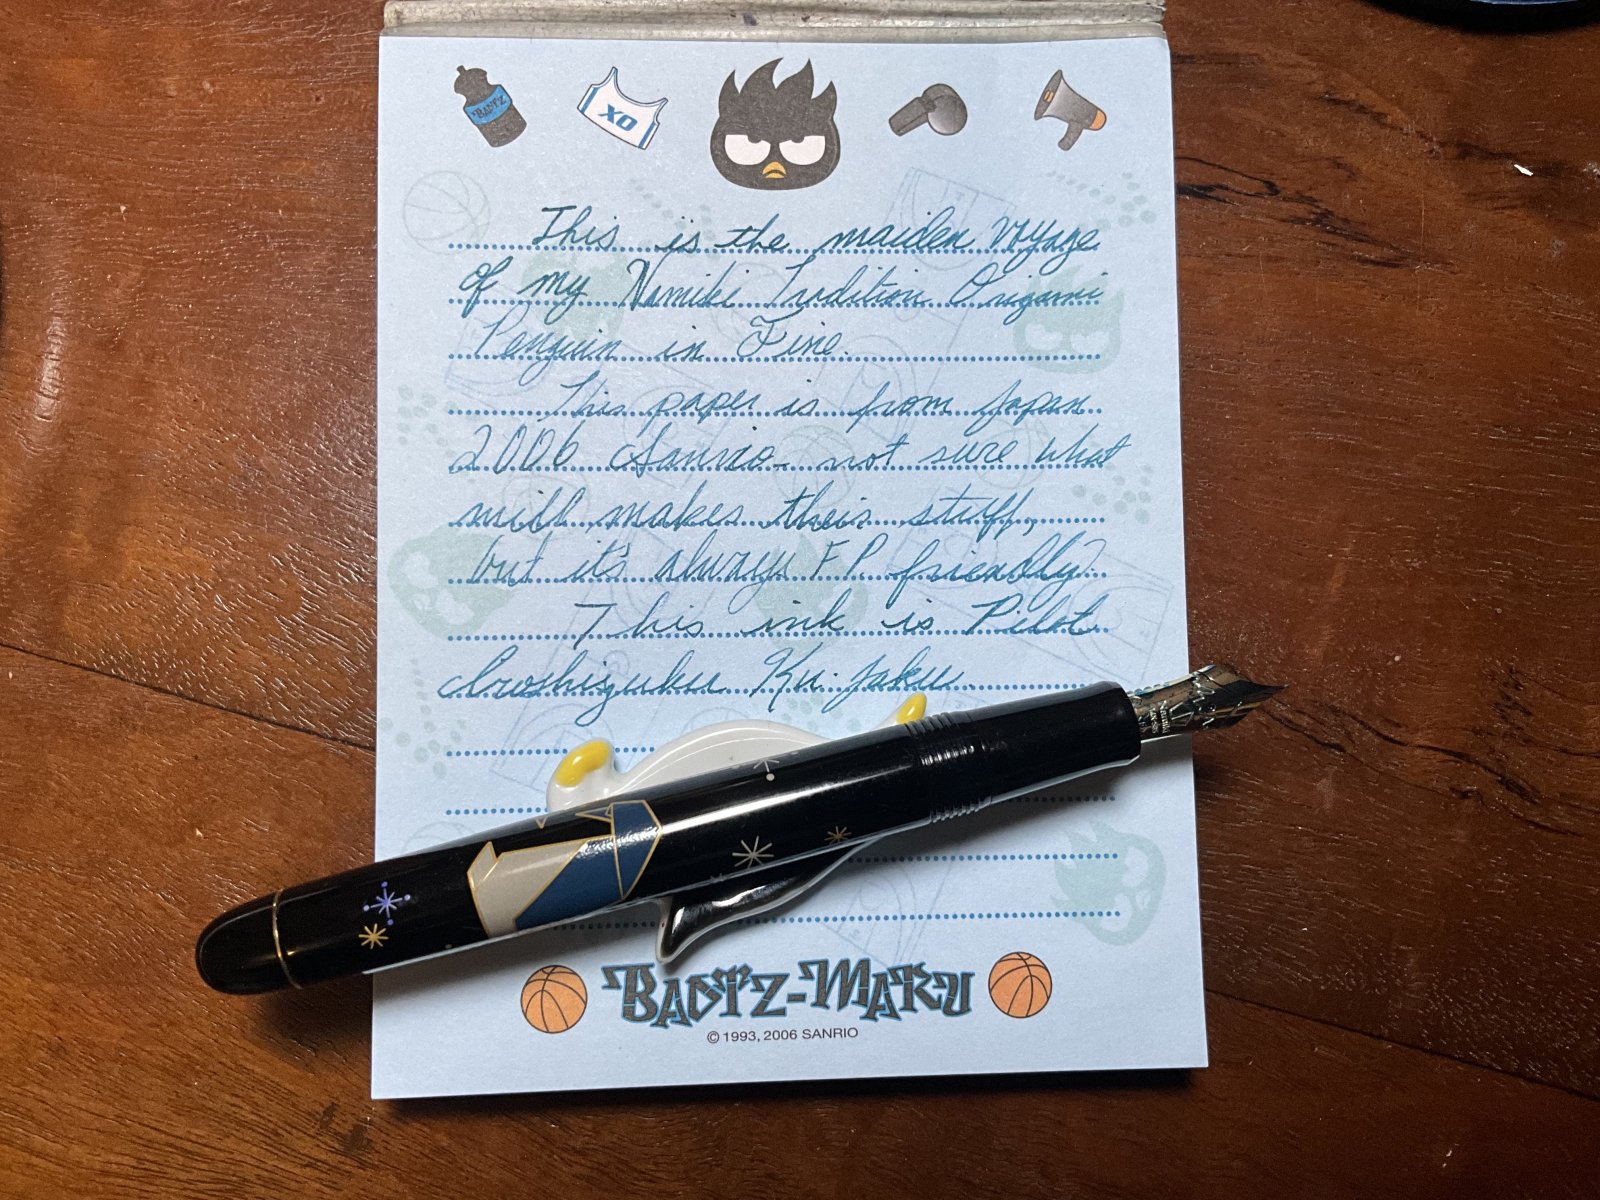 BADTZ
XO
This is the maiden voyage
of my Namiki Tradition Origami
Penguin in Fine.
This paper is from Japan
2006 Sanrio- not sure what
mill makes their stuff,
but it's always FP friendly?
This ink is Pilot
Iroshizuku Ku-jaku.
BADTZ-MARU
© 1993, 2006 SANRIO